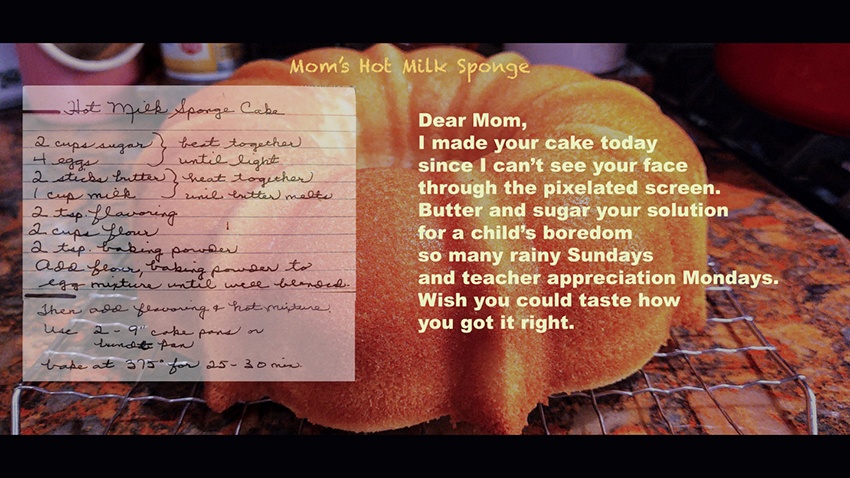 Mom's Hot Milk Sponge
Hot Milk Sponge Cake
2 cups sugar } beat together
4 eggs } until light
2 sticks butter } heat together
1 cup milk } unil butter melts
2 tsp. flavoring
2 cups flour
2 tsp. baking powder
Add flour, baking powder to
egg mixture until well blended.
Then add flavoring & hot mixture.
Use 2 - 9" cake pans or
bundt pan
bake at 375° for 25-30 min.
Dear Mom,
I made your cake today
since I can't see your face
through the pixelated screen.
Butter and sugar your solution
for a child's boredom
so many rainy Sundays
and teacher appreciation Mondays.
Wish you could taste how
you got it right.